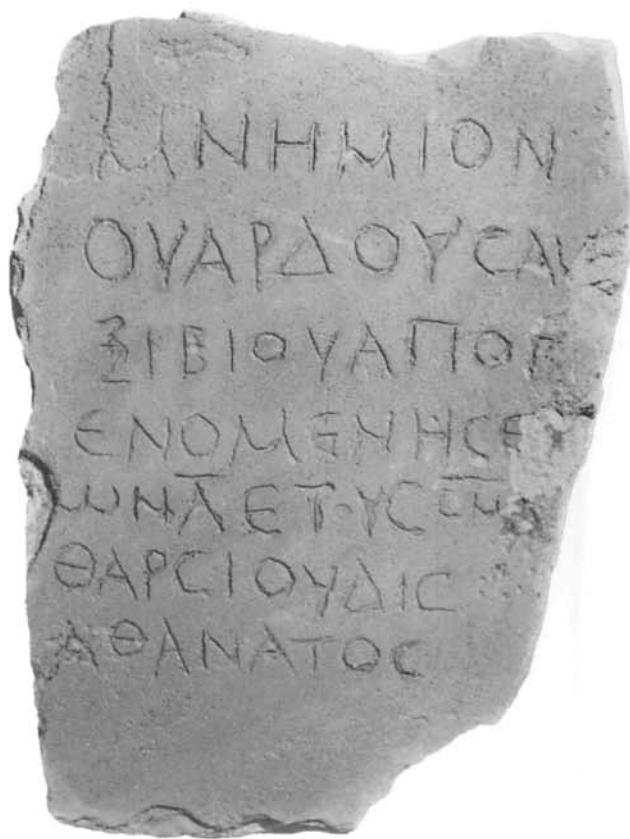 ΜΝΗΜΙΟΝ
ΟΥΑΡΔΟΥϹΑΥ
ΞΙΒΙΟΥΑΠΟΓ
ΕΝΟΜΕΝΗϹΕΤ
ΩΝΛ̅ΕΤΟΥϹ
ΘΑΡϹΙΟΥΔΙϹ
ΑΘΑΝΑΤΟϹ